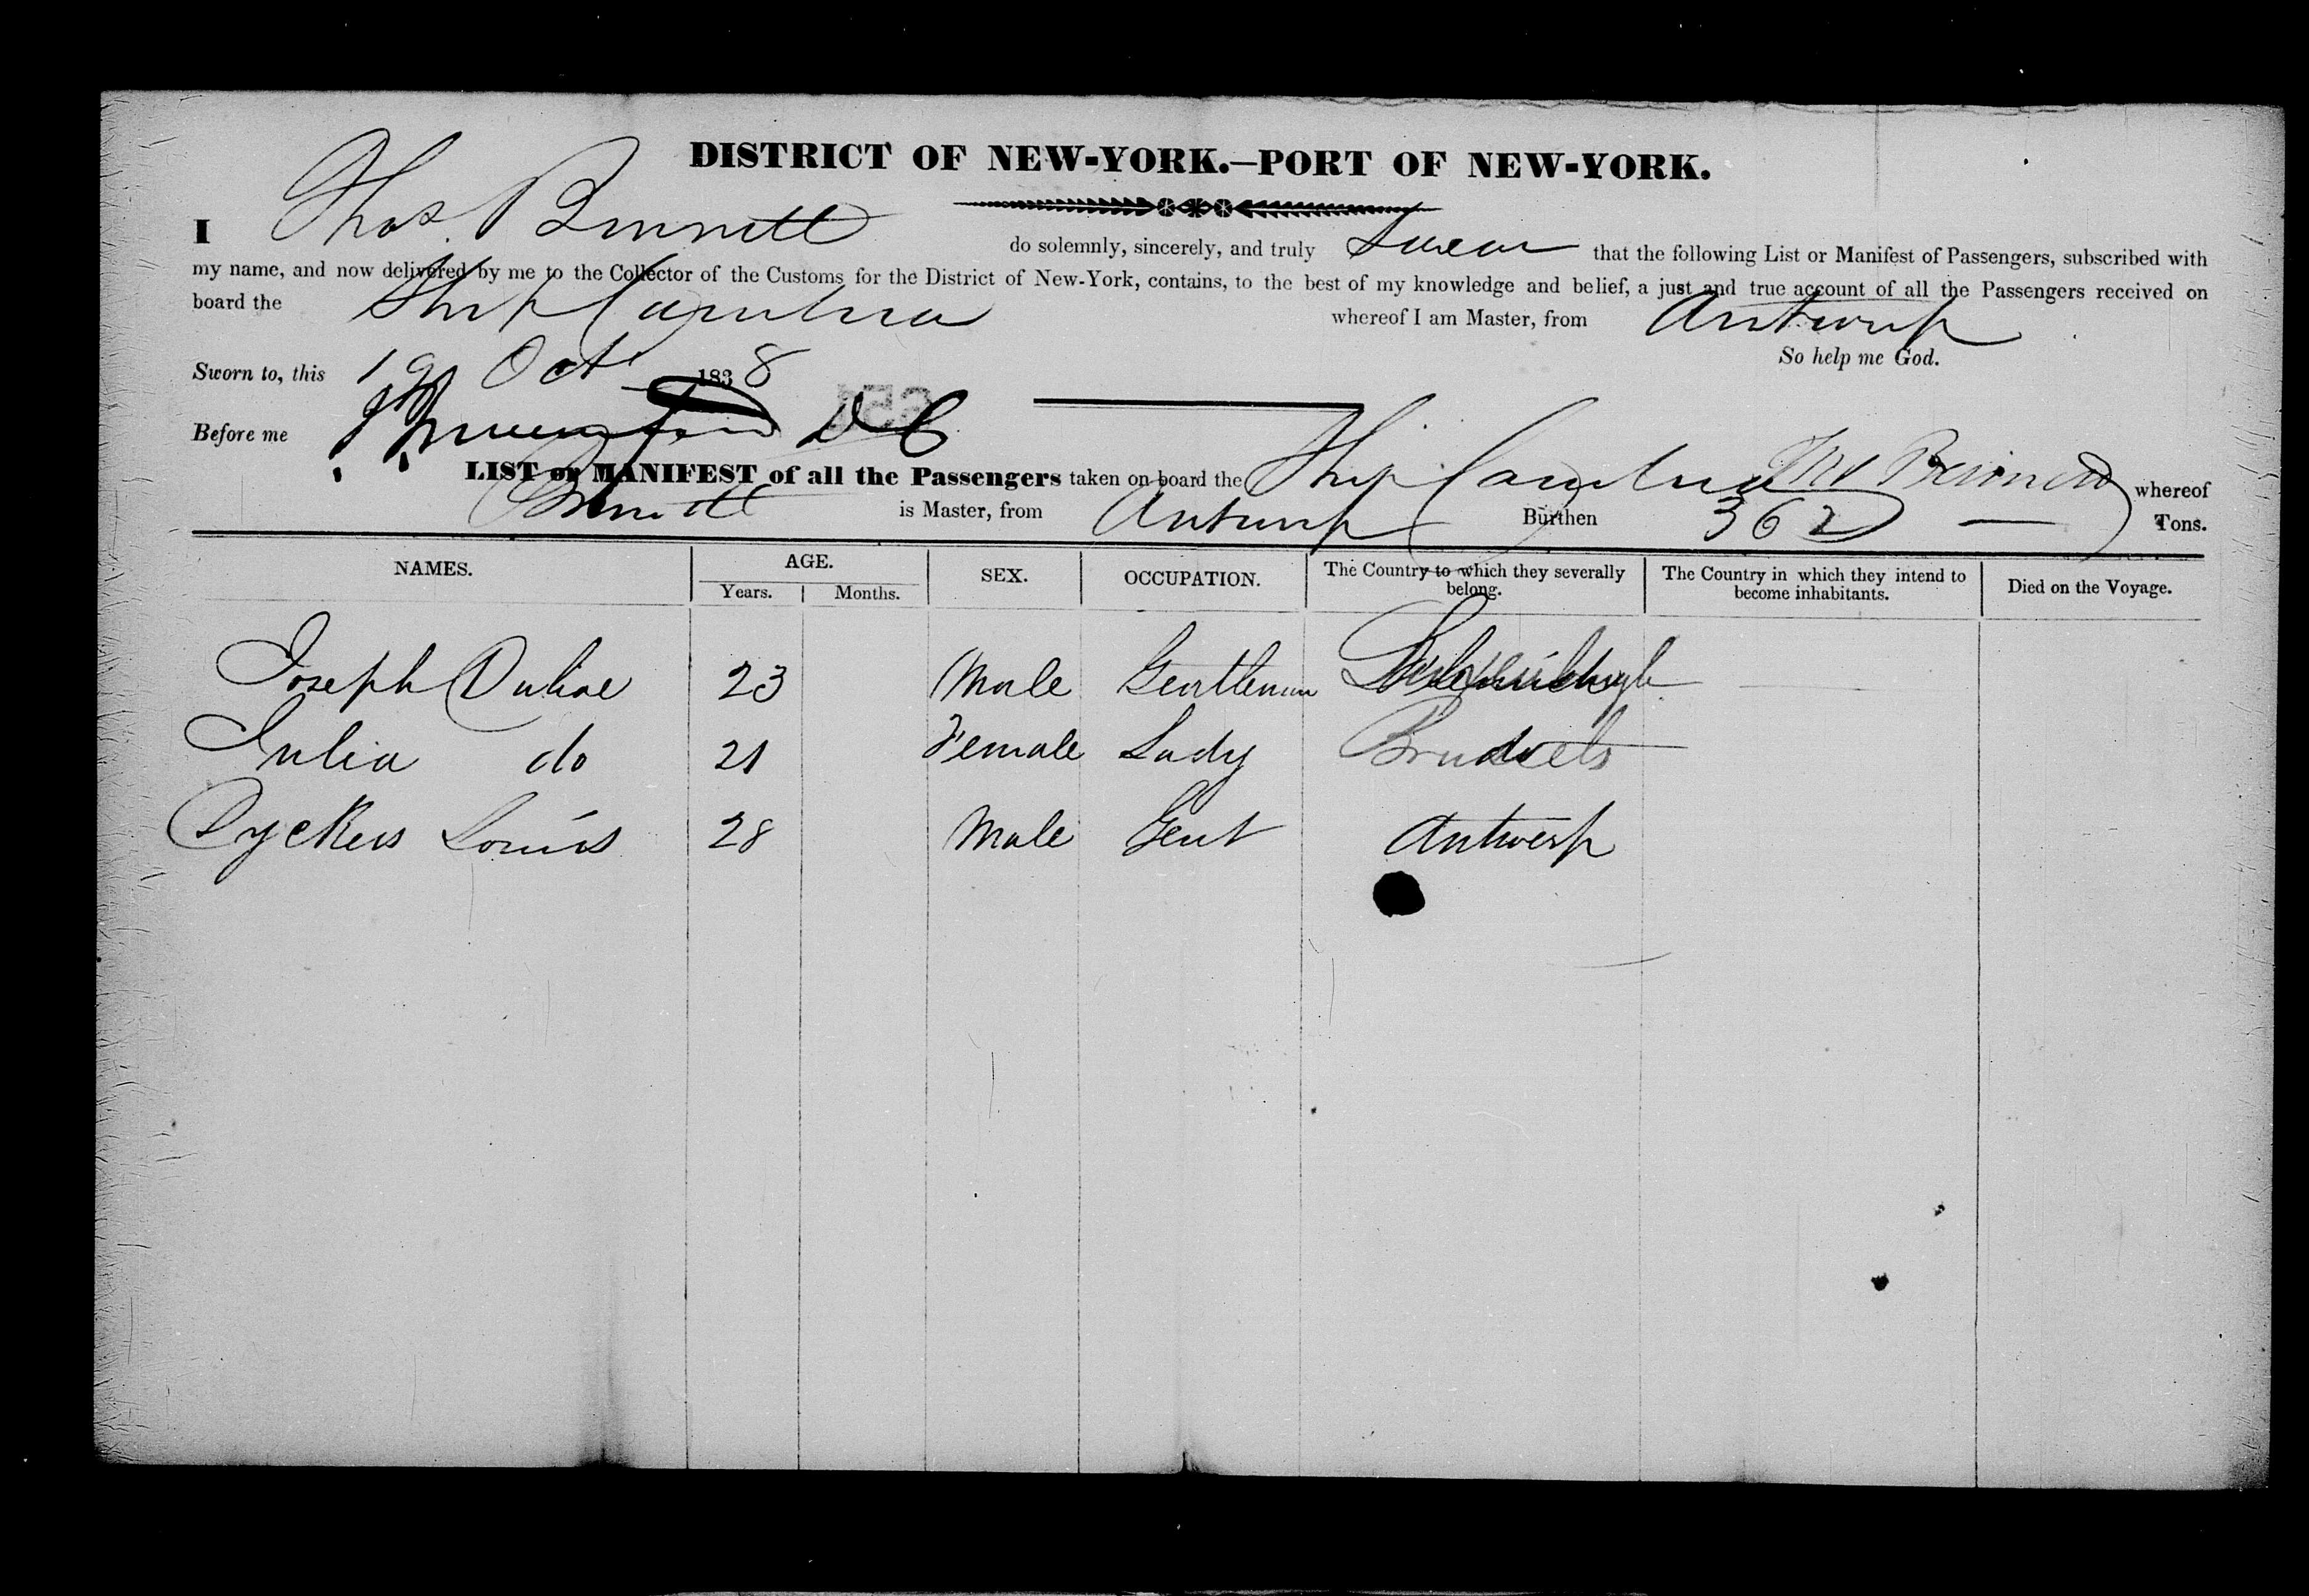 DISTRICT OF NEW-YORK.—PORT OF NEW-YORK.
I Thos. Bennett do solemnly, sincerely, and truly Swear that the following List or Manifest of Passengers, subscribed with
my name, and now delivered by me to the Collector of the Customs for the District of New-York, contains, to the best of my knowledge and belief, a just and true account of all the Passengers received on
board the Ship whereof I am Master, from Antwerp
So help me God.
Sworn to, this 19 Oct 1838
Before me D C
LIST or MANIFEST of all the Passengers taken on board the Ship whereof
Bennett is Master, from Antwerp Burthen 362 Tons.
NAMES. AGE. SEX. OCCUPATION. The Country to which they severally belong. The Country in which they intend to become inhabitants. Died on the Voyage.
Years. Months.
Joseph 23 Male Gentleman
Julia do 21 Female Lady Brussels
Dyckers Louis 28 Male Gent Antwerp